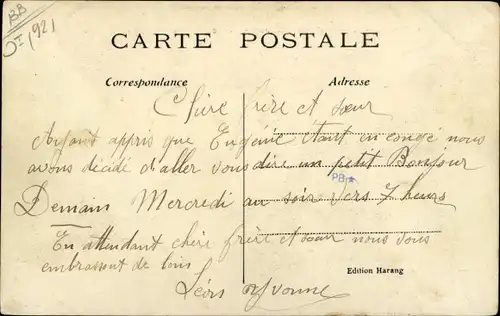 BB
1921
CARTE POSTALE
Correspondance
Adresse
Chère frère et sœur
Ayant appris que Eugénie étant en congé nous
avons décidé d'aller vous dire un petit Bonjour
PB
Demain Mercredi au soir vers 7 heurs
En attendant chère frère et sœur nous vous
embrassont de loin
Edition Harang
Yvonne